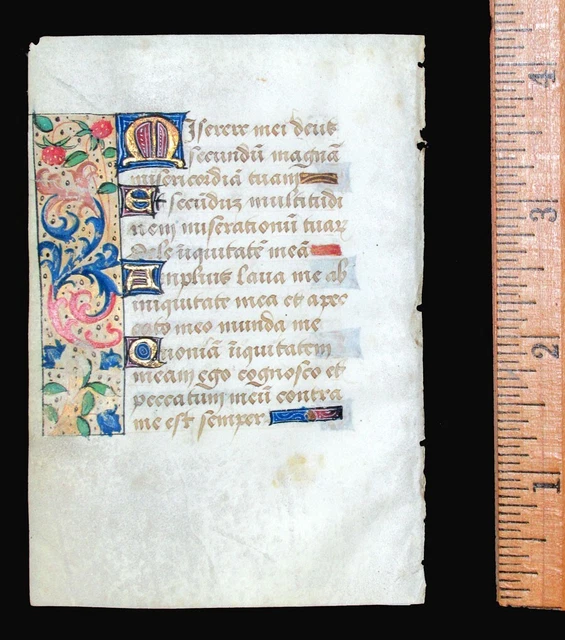 Miserere mei deus
secundū magnā
misericordiā tuam
Et secūduz multitudi
nem miserationū tuaꝝ
dele īiquitatē meā
Ampliꝰ laua me ab
iniquitate mea et a pec
cato meo munda me
Quoniā īiquitatem
meam ego cognosco et
peccatum meū contra
me est semper
4
3
2
1